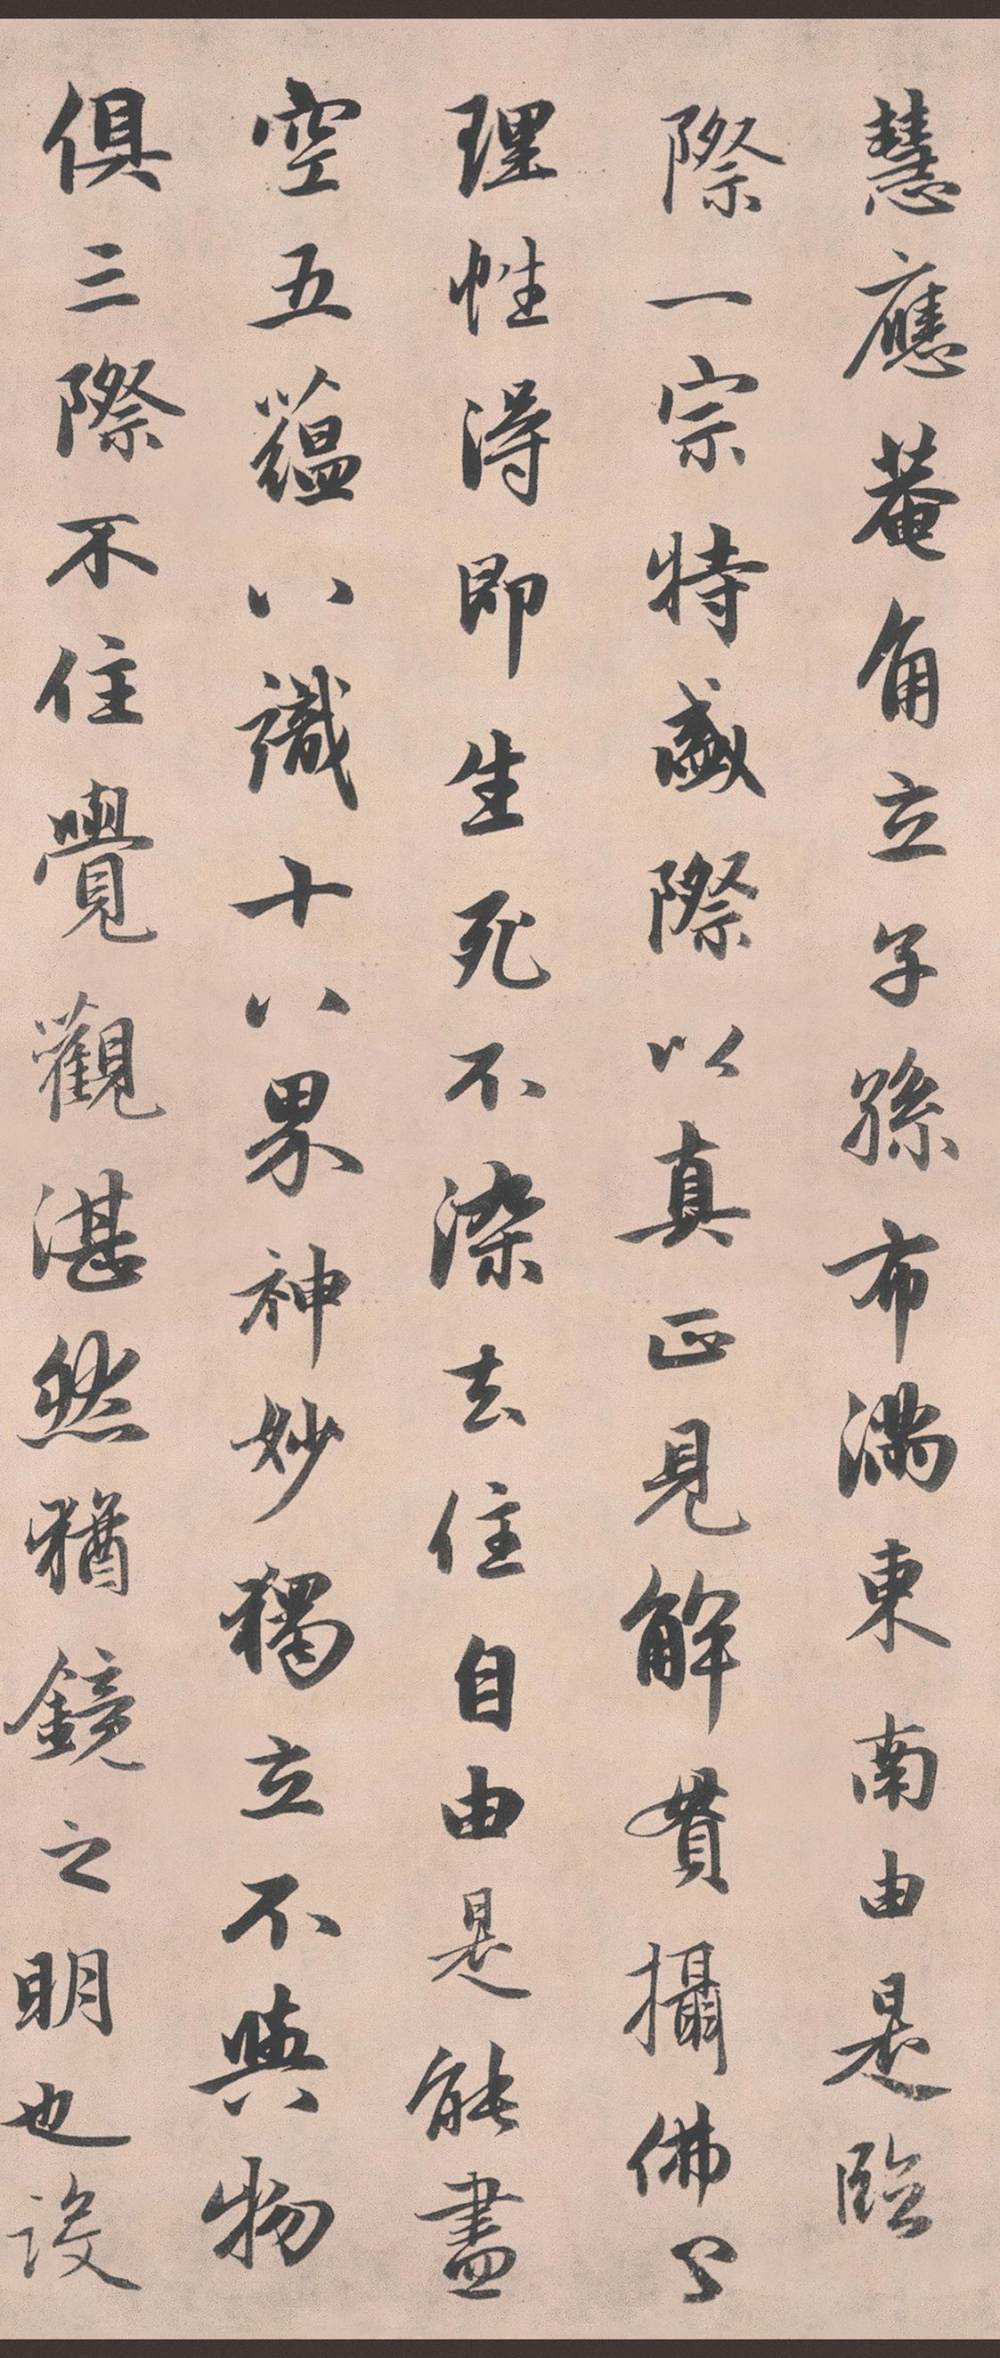 慧應菴角立子孫布滿東南由是臨
際一宗特盛際以真正見解貫攝佛了
理性得即生死不染去住自由是能盡
空五蘊八識十八界神妙獨立不與物
俱三際不住覺觀湛然猶鏡之明也設